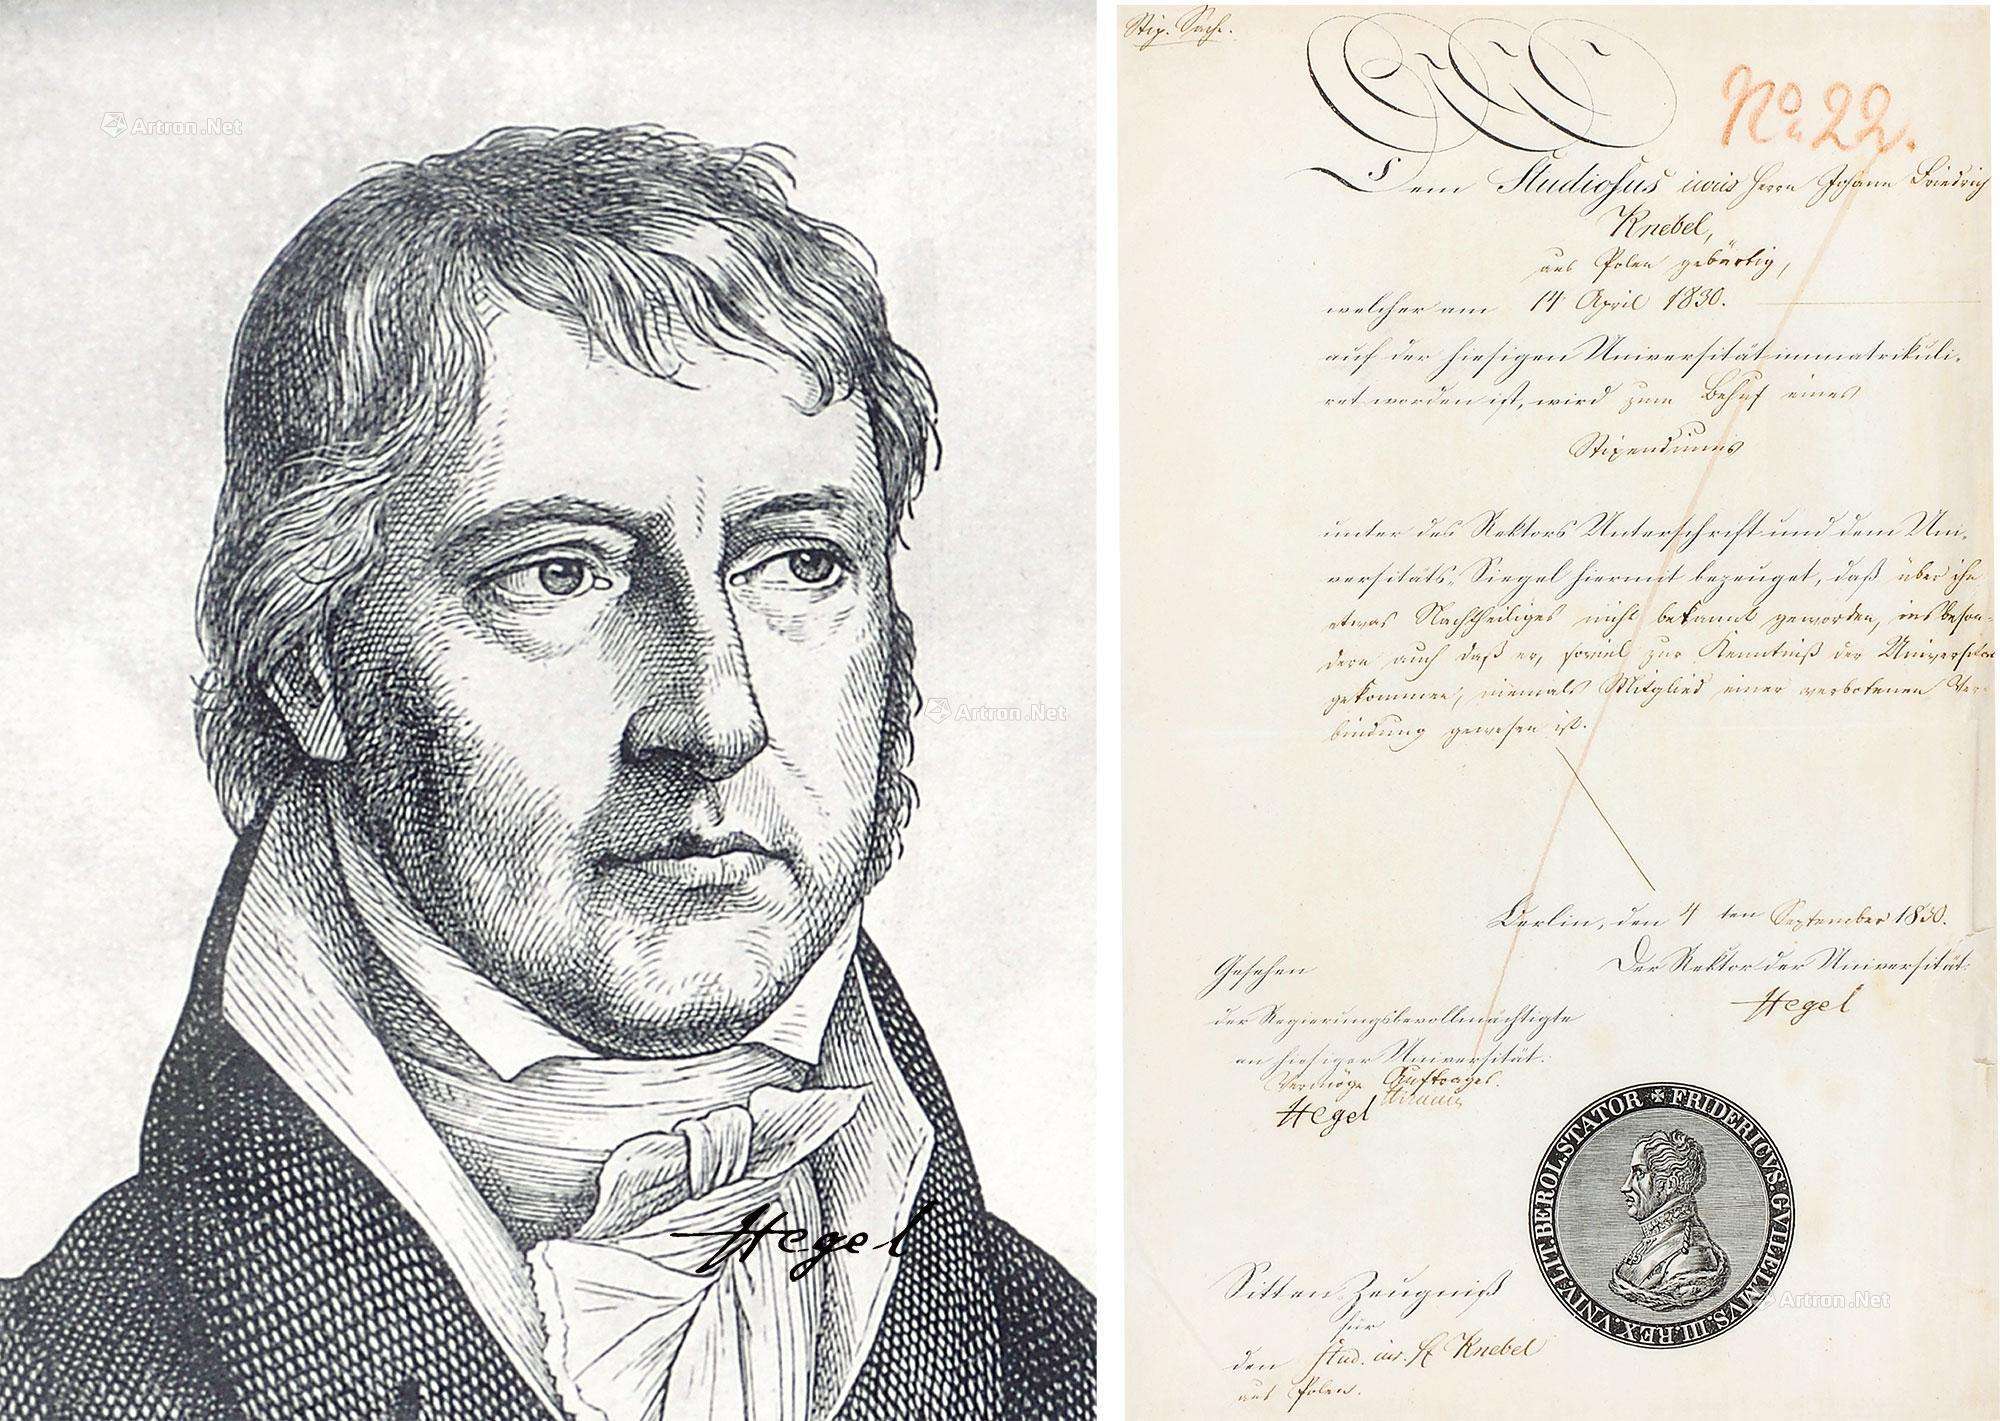 Artron.Net
Artron.Net
Hegel
Stip. Sache.
No. 22.
Dem Studiosus iuris Herrn Johann Friedrich
Knebel,
aus Polen gebürtig,
welcher am 14 April 1830.
auf der hiesigen Universität immatrikuli-
ret worden ist, wird zum Behuf eines
Stipendiums
unter des Rektors Unterschrift und dem Uni-
versitäts-Siegel hiermit bezeuget, daß über ihn
etwas Nachtheiliges nicht bekannt geworden, insbeson-
dere auch daß er, soviel zur Kenntniß der Universität
gekommen, niemals Mitglied einer verbotenen Ver-
bindung gewesen ist.
Berlin, den 4ten September 1830.
Gesehen
Der Rektor der Universität.
Hegel
der Regierungsbevollmächtigte
an hiesiger Universität.
Vermöge Auftrages.
Hegel
FRIDERICVS. GVILELMVS. III. REX. VNIV. LIT. BEROL. STATOR
Artron.Net
Sitten-Zeugniß
für
den stud. iur. H Knebel
aus Polen.